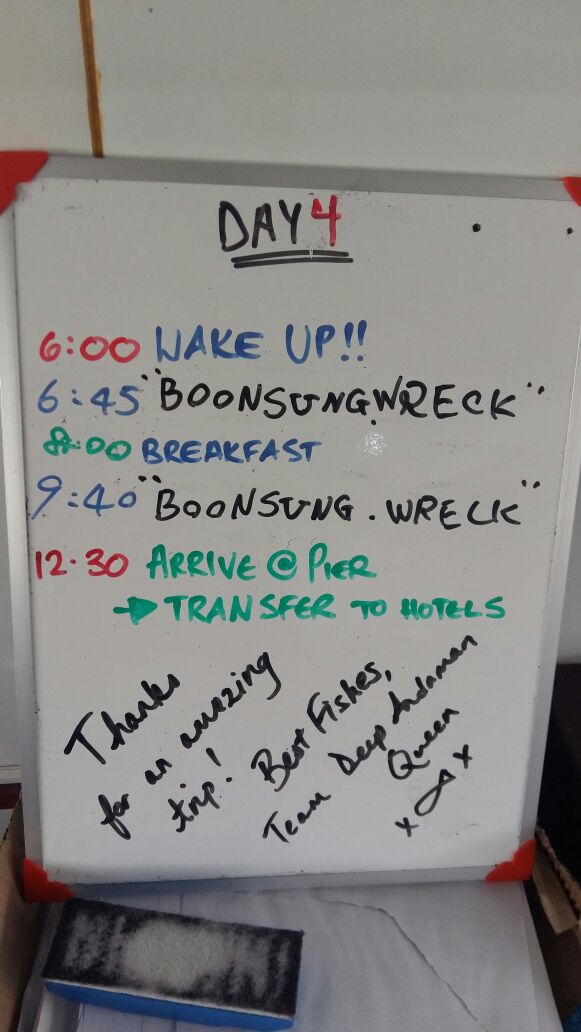 DAY 4
6:00 WAKE UP!!
6:45 "BOONSUNG.WRECK"
8:00 BREAKFAST
9:40 "BOONSUNG.WRECK"
12.30 ARRIVE @ PIER
→ TRANSFER TO HOTELS
Thanks
for an amazing
trip!
Best Fishes,
Team Deep Andaman
Queen
x x